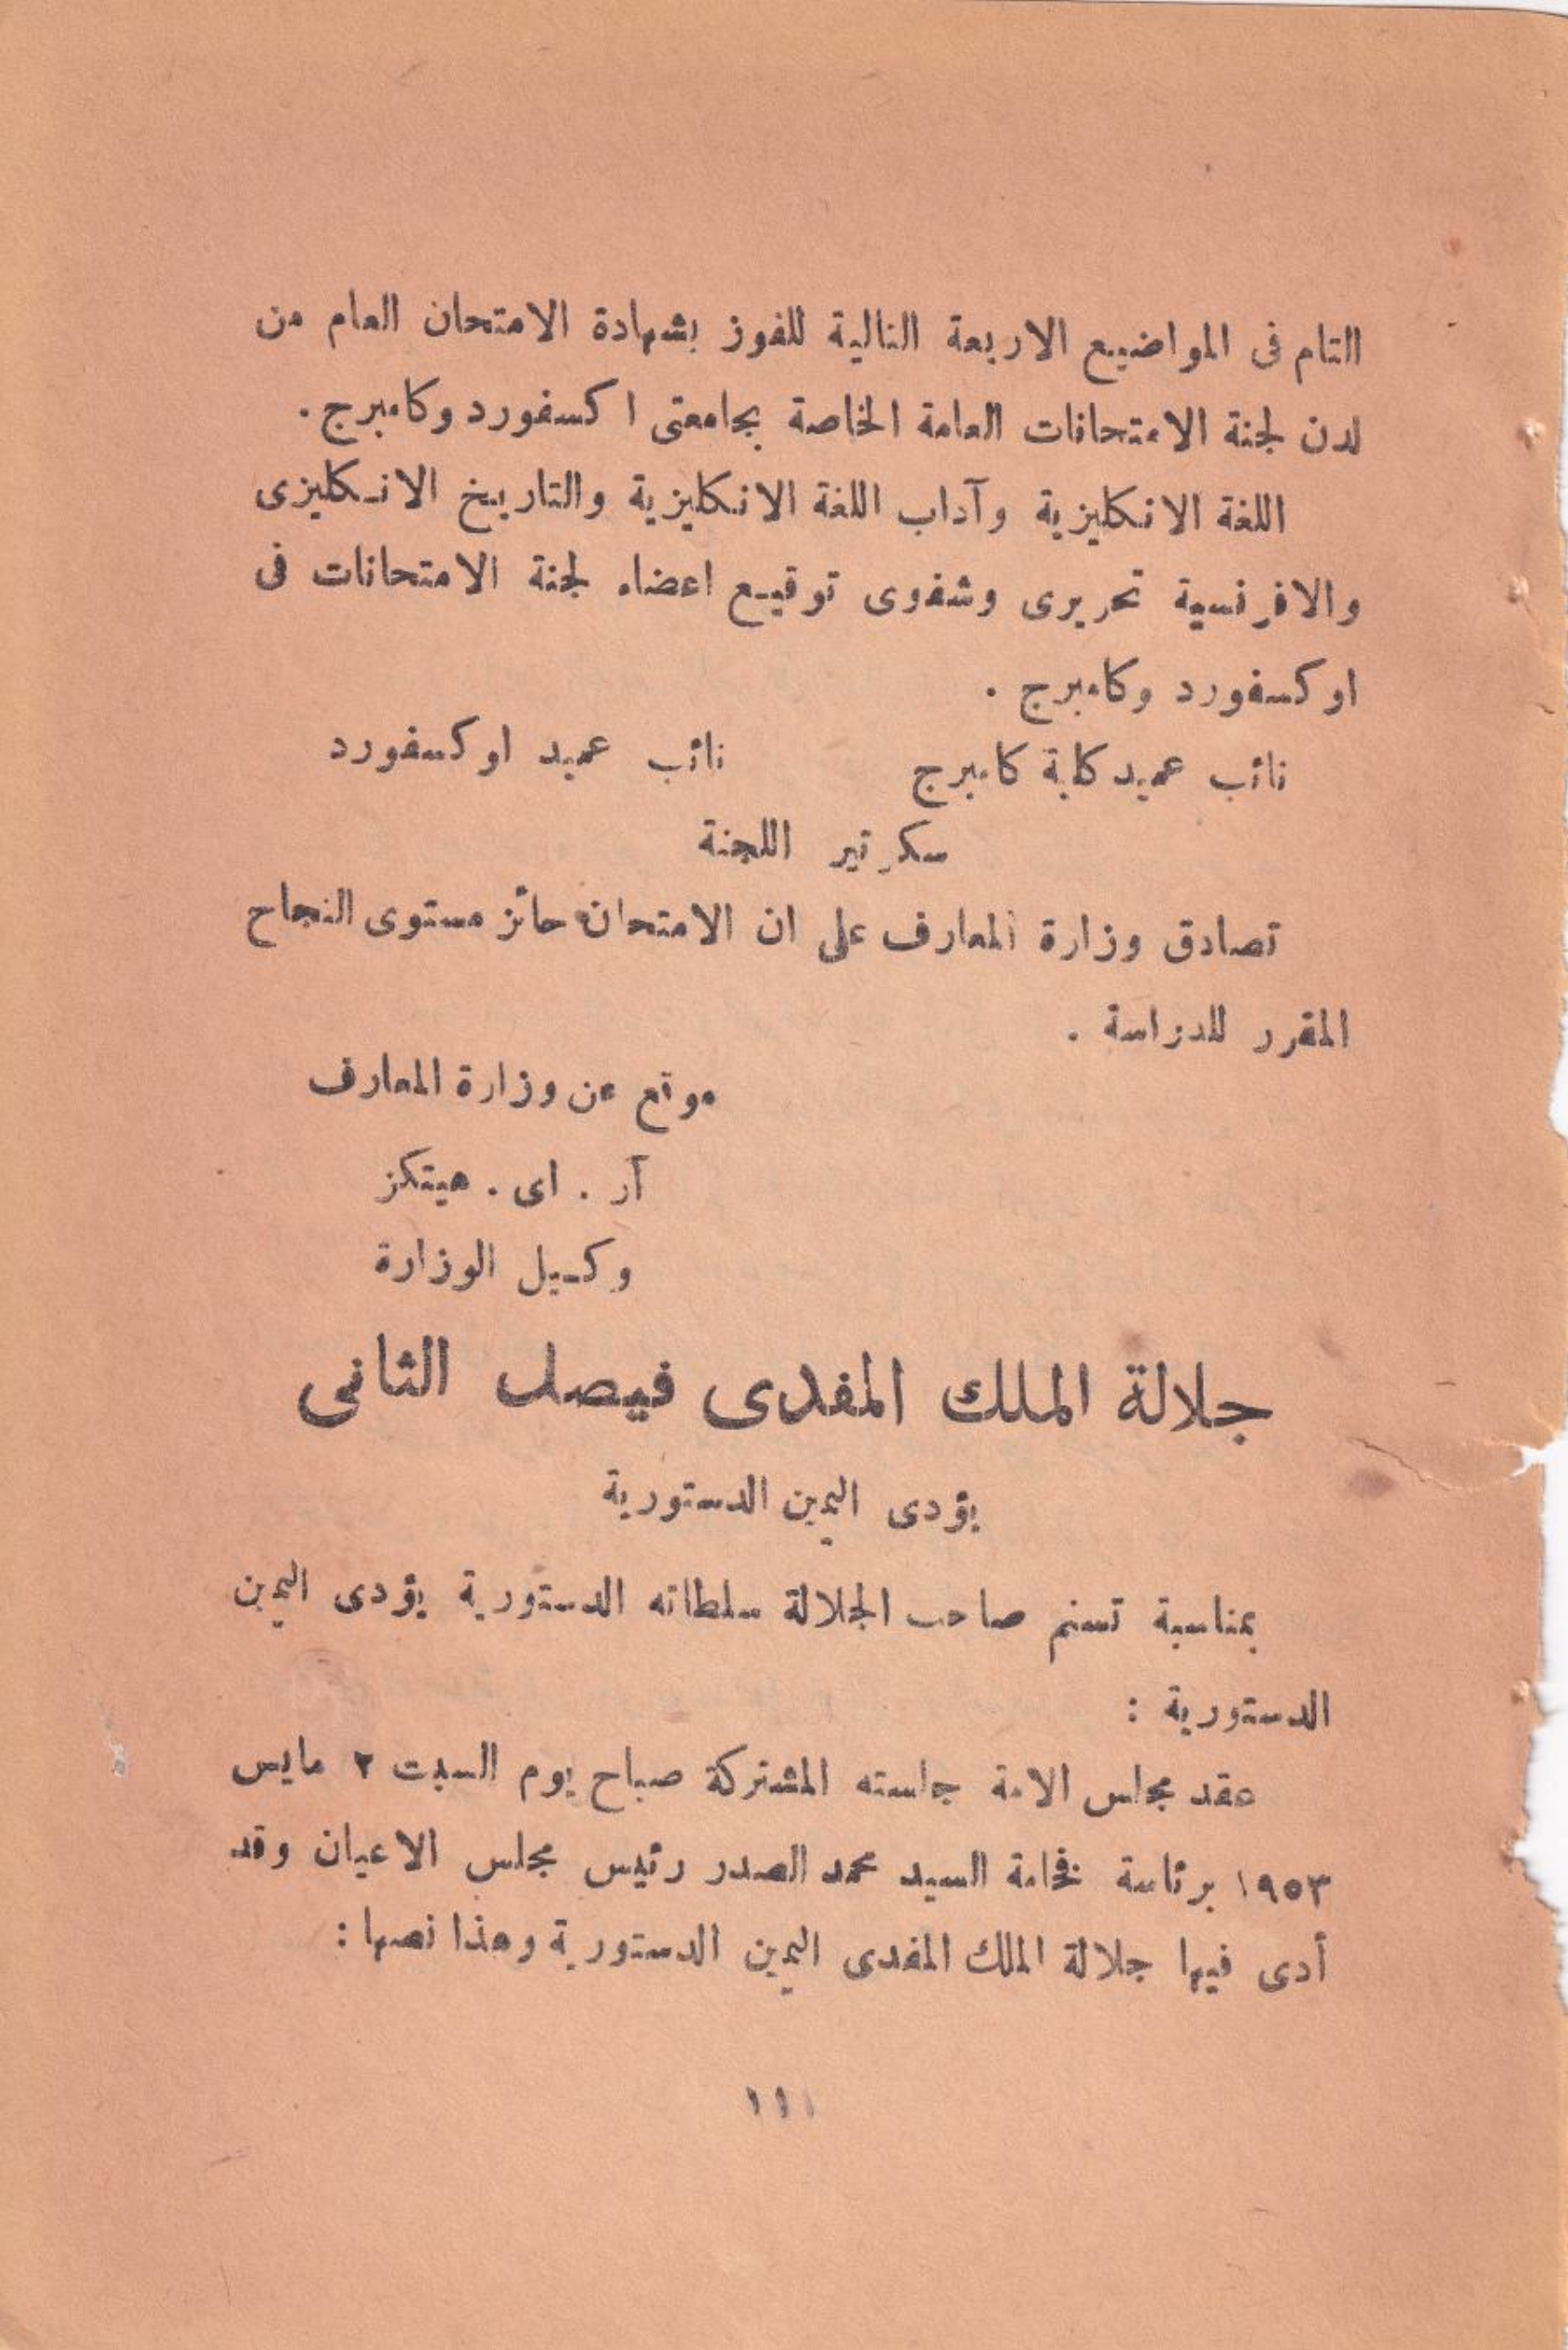 التام فى المواضيع الاربعة التالية للفوز بشهادة الامتحان العام من
لدن لجنة الامتحانات العامة الخاصة بجامعتى اكسفورد وكامبرج .
اللغة الانكليزية وآداب اللغة الانكليزية والتاريخ الانكليزى
والافرنسية تحريرى وشفوى توقيع اعضاء لجنة الامتحانات فى
اوكسفورد وكامبرج .
نائب عميد كلية كامبرج نائب عميد اوكسفورد
سكرتير اللجنة
تصادق وزارة المعارف على ان الامتحان حائز مستوى النجاح
المقرر للدراسة .
موقع عن وزارة المعارف
آر . اى . هيتكز
وكيل الوزارة
جلالة الملك المفدى فيصل الثانى
يؤدى اليمين الدستورية
بمناسبة تسنم صاحب الجلالة سلطاته الدستورية يؤدى اليمين
الدستورية :
عقد مجلس الامة جلسته المشتركة صباح يوم السبت ٢ مايس
١٩٥٣ برئاسة فخامة السيد محمد الصدر رئيس مجلس الاعيان وقد
أدى فيها جلالة الملك المفدى اليمين الدستورية وهذا نصها :
١١١